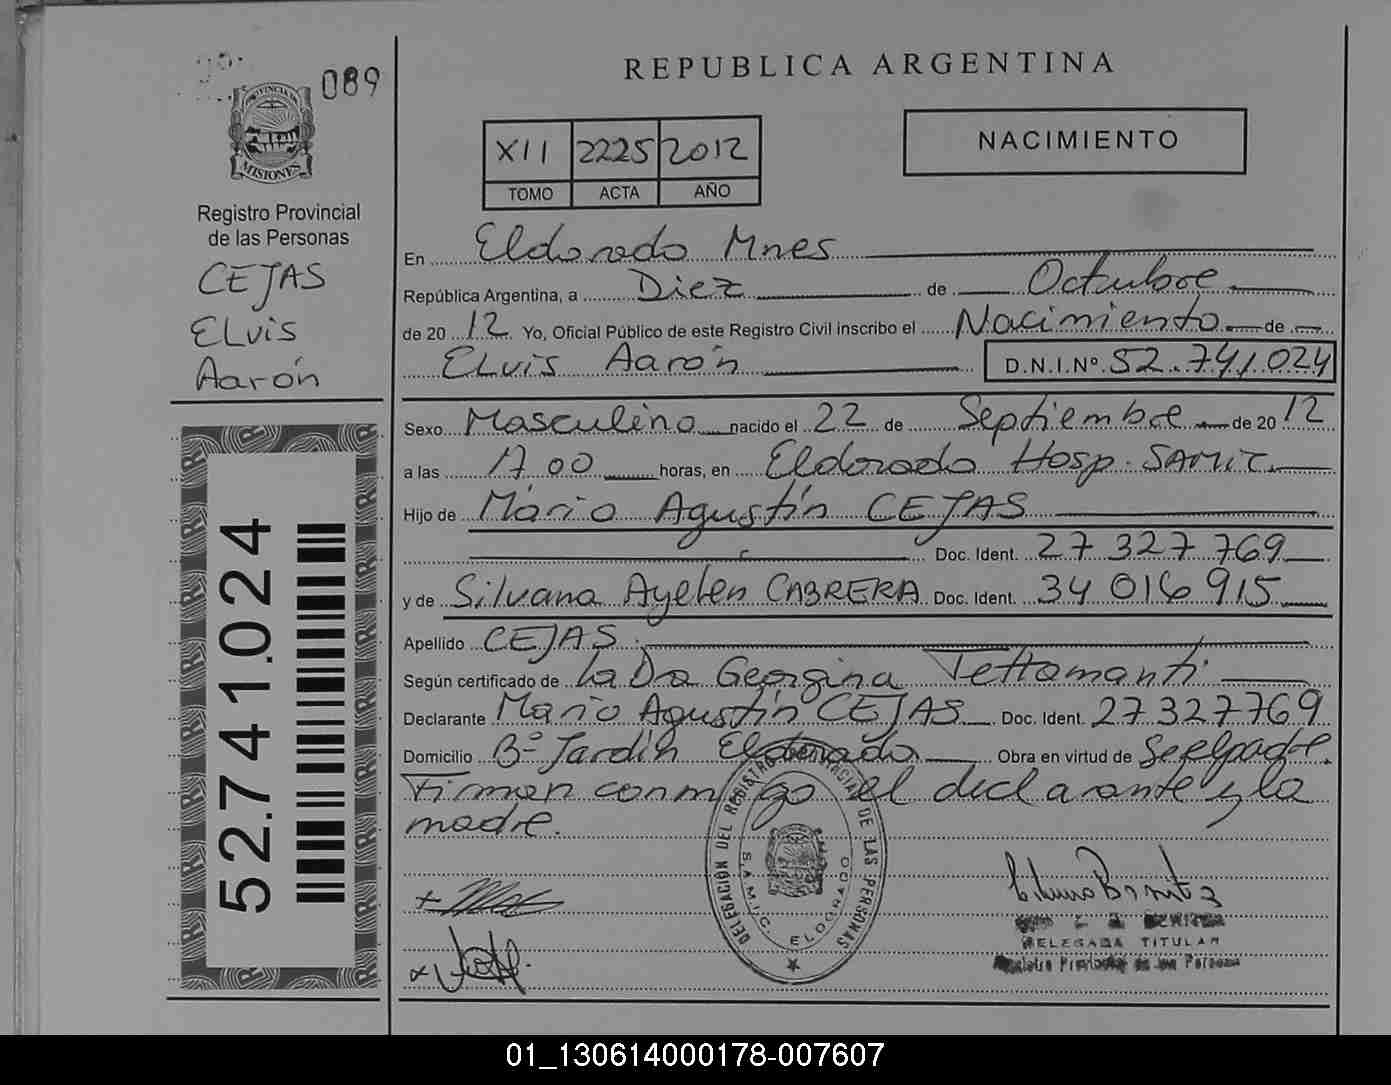 089
PROVINCIA DE
MISIONES
Registro Provincial
de las Personas
CEJAS
ELvis
Aarón
52.741.024
REPUBLICA ARGENTINA
XII 2225 2012
TOMO ACTA AÑO
NACIMIENTO
En Eldorado Mnes
República Argentina, a Diez de Octubre
de 20 12 Yo, Oficial Público de este Registro Civil inscribo el Nacimiento de
ELvis Aarón D.N.I.Nº 52.741.024
Sexo Masculino nacido el 22 de Septiembre de 20 12
a las 17 00 horas, en Eldorado Hosp. SAMIC
Hijo de Mario Agustín CEJAS
Doc. Ident. 27 327 769
y de Silvana Ayelen CABRERA Doc. Ident. 34 016 915
Apellido CEJAS
Según certificado de La Dra Georgina Tettamanti
Declarante Mario Agustín CEJAS Doc. Ident. 27 327 769
Domicilio Bº Jardín Eldorado Obra en virtud de Ser el padre.
Firman conmigo el declarante y la
madre.
DELEGACIÓN DEL REGISTRO PROVINCIAL DE LAS PERSONAS
S.A.M.I.C. ELDORADO
DELEGADA TITULAR
Registro Provincial de las Personas
01_130614000178-007607